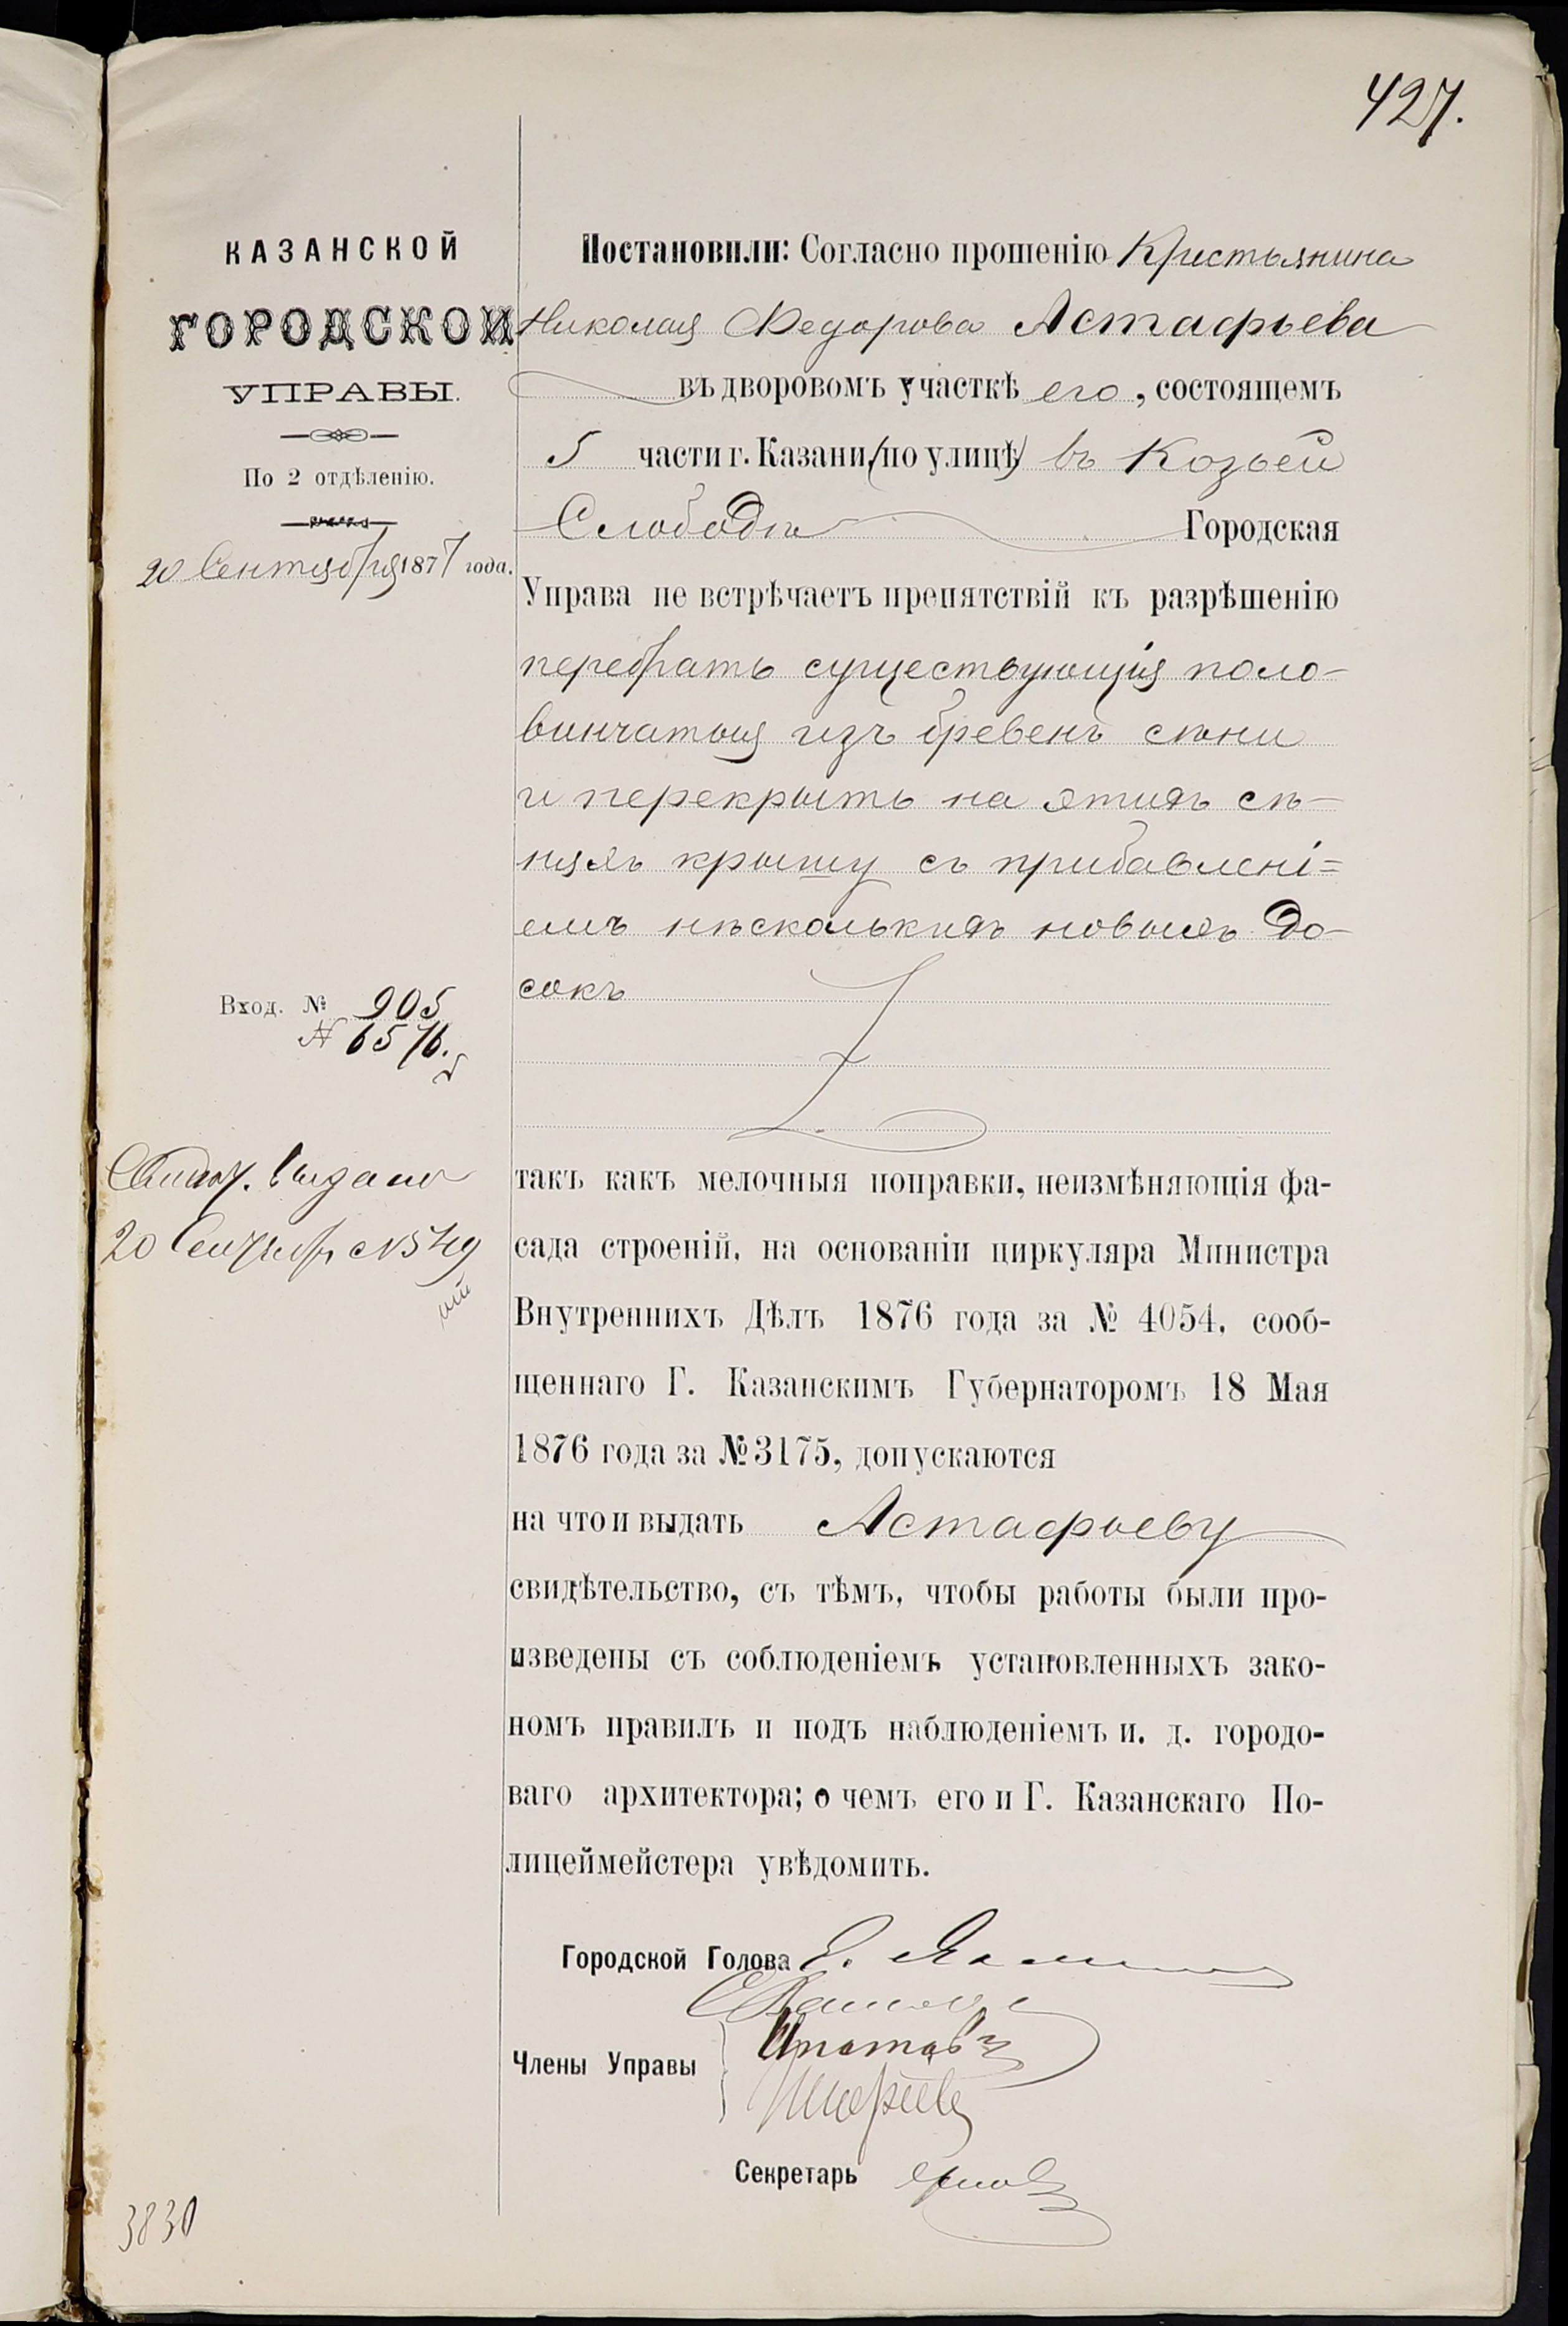 427.
КАЗАНСКОЙ
ГОРОДСКОЙ
УПРАВЫ.
По 2 отдѣленію.
20 Сентября 1877 года.
Вход. № 905
№ 6576.
выдано
20
3830
Постановили: Согласно прошенію Крестьянина
Николая Федорова Астафьева
въ дворовомъ участкѣ его, состоящемъ
5 части г. Казани, (по улицѣ) въ Козьей
Слободѣ Городская
Управа не встрѣчаетъ препятствій къ разрѣшенію
перебрать существующія поло-
винчатыя изъ бревенъ сѣни
и перекрыть на этихъ сѣ-
няхъ крышу съ прибавлені=
емъ нѣсколькихъ новыхъ до-
сокъ
такъ какъ мелочныя поправки, неизмѣняющія фа-
сада строеній, на основаніи циркуляра Министра
Внутреннихъ Дѣлъ 1876 года за № 4054, сооб-
щеннаго Г. Казанскимъ Губернаторомъ 18 Мая
1876 года за № 3175, допускаются
на что и выдать Астафьеву
свидѣтельство, съ тѣмъ, чтобы работы были про-
изведены съ соблюденіемъ установленныхъ зако-
номъ правилъ и подъ наблюденіемъ и. д. городо-
ваго архитектора; о чемъ его и Г. Казанскаго По-
лицеймейстера увѣдомить.
Городской Голова
Члены Управы
Секретарь